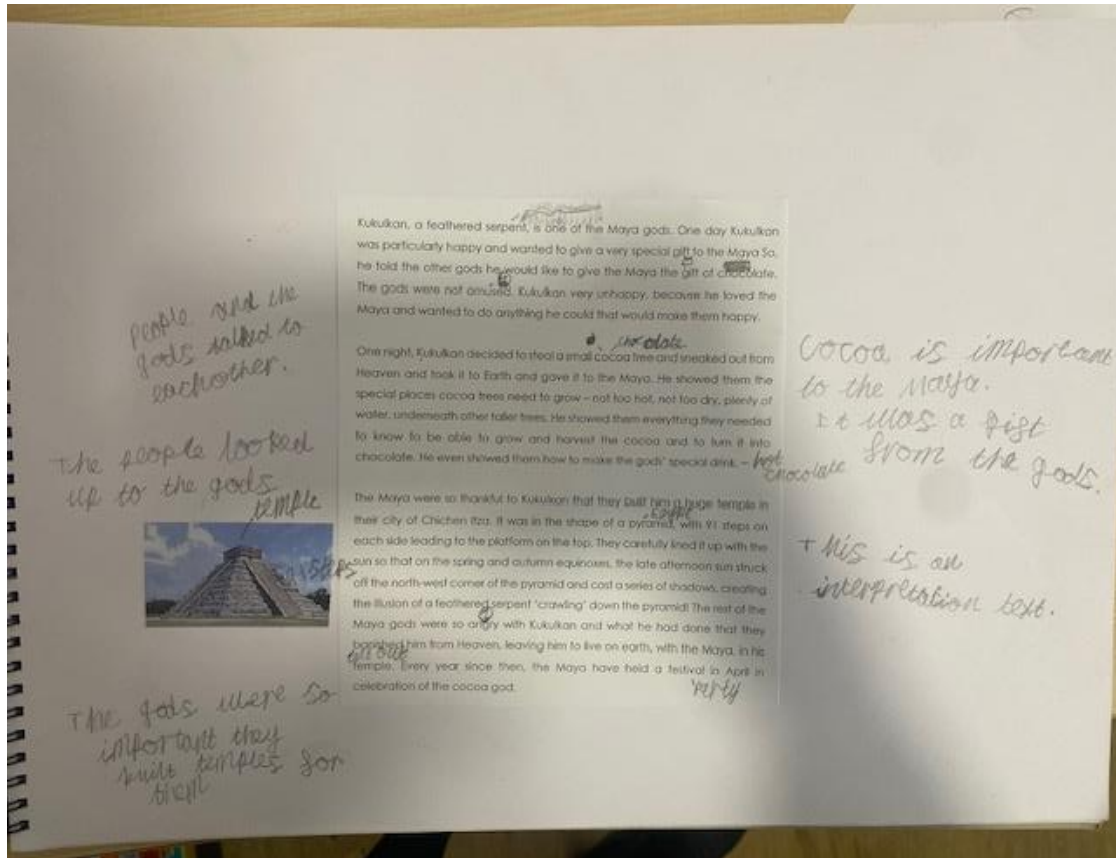 people and the
gods talked to
eachother.
The people looked
up to the gods
temple
steps
The gods were so
important they
built temples for
them
Kukulkan, a feathered serpent, is one of the Maya gods. One day Kukulkan
was particularly happy and wanted to give a very special gift to the Maya So,
he told the other gods he would like to give the Maya the gift of chocolate.
The gods were not amused. Kukulkan very unhappy, because he loved the
Maya and wanted to do anything he could that would make them happy.
chocolate
One night, Kukulkan decided to steal a small cocoa tree and sneaked out from
Heaven and took it to Earth and gave it to the Maya. He showed them the
special places cocoa trees need to grow – not too hot, not too dry, plenty of
water, underneath other taller trees. He showed them everything they needed
to know to be able to grow and harvest the cocoa and to turn it into
chocolate. He even showed them how to make the gods' special drink. – hot
chocolate
The Maya were so thankful to Kukulkan that they built him a huge temple in
Egypt
their city of Chichen Itza. It was in the shape of a pyramid, with 91 steps on
each side leading to the platform on the top. They carefully lined it up with the
sun so that on the spring and autumn equinoxes, the late afternoon sun struck
off the north-west corner of the pyramid and cast a series of shadows, creating
the illusion of a feathered serpent 'crawling' down the pyramid! The rest of the
Maya gods were so angry with Kukulkan and what he had done that they
banished him from Heaven, leaving him to live on earth, with the Maya, in his
temple. Every year since then, the Maya have held a festival in April in
celebration of the cocoa god.
party
Cocoa is important
to the Maya.
It was a gift
from the gods.
This is an
interpretation text.